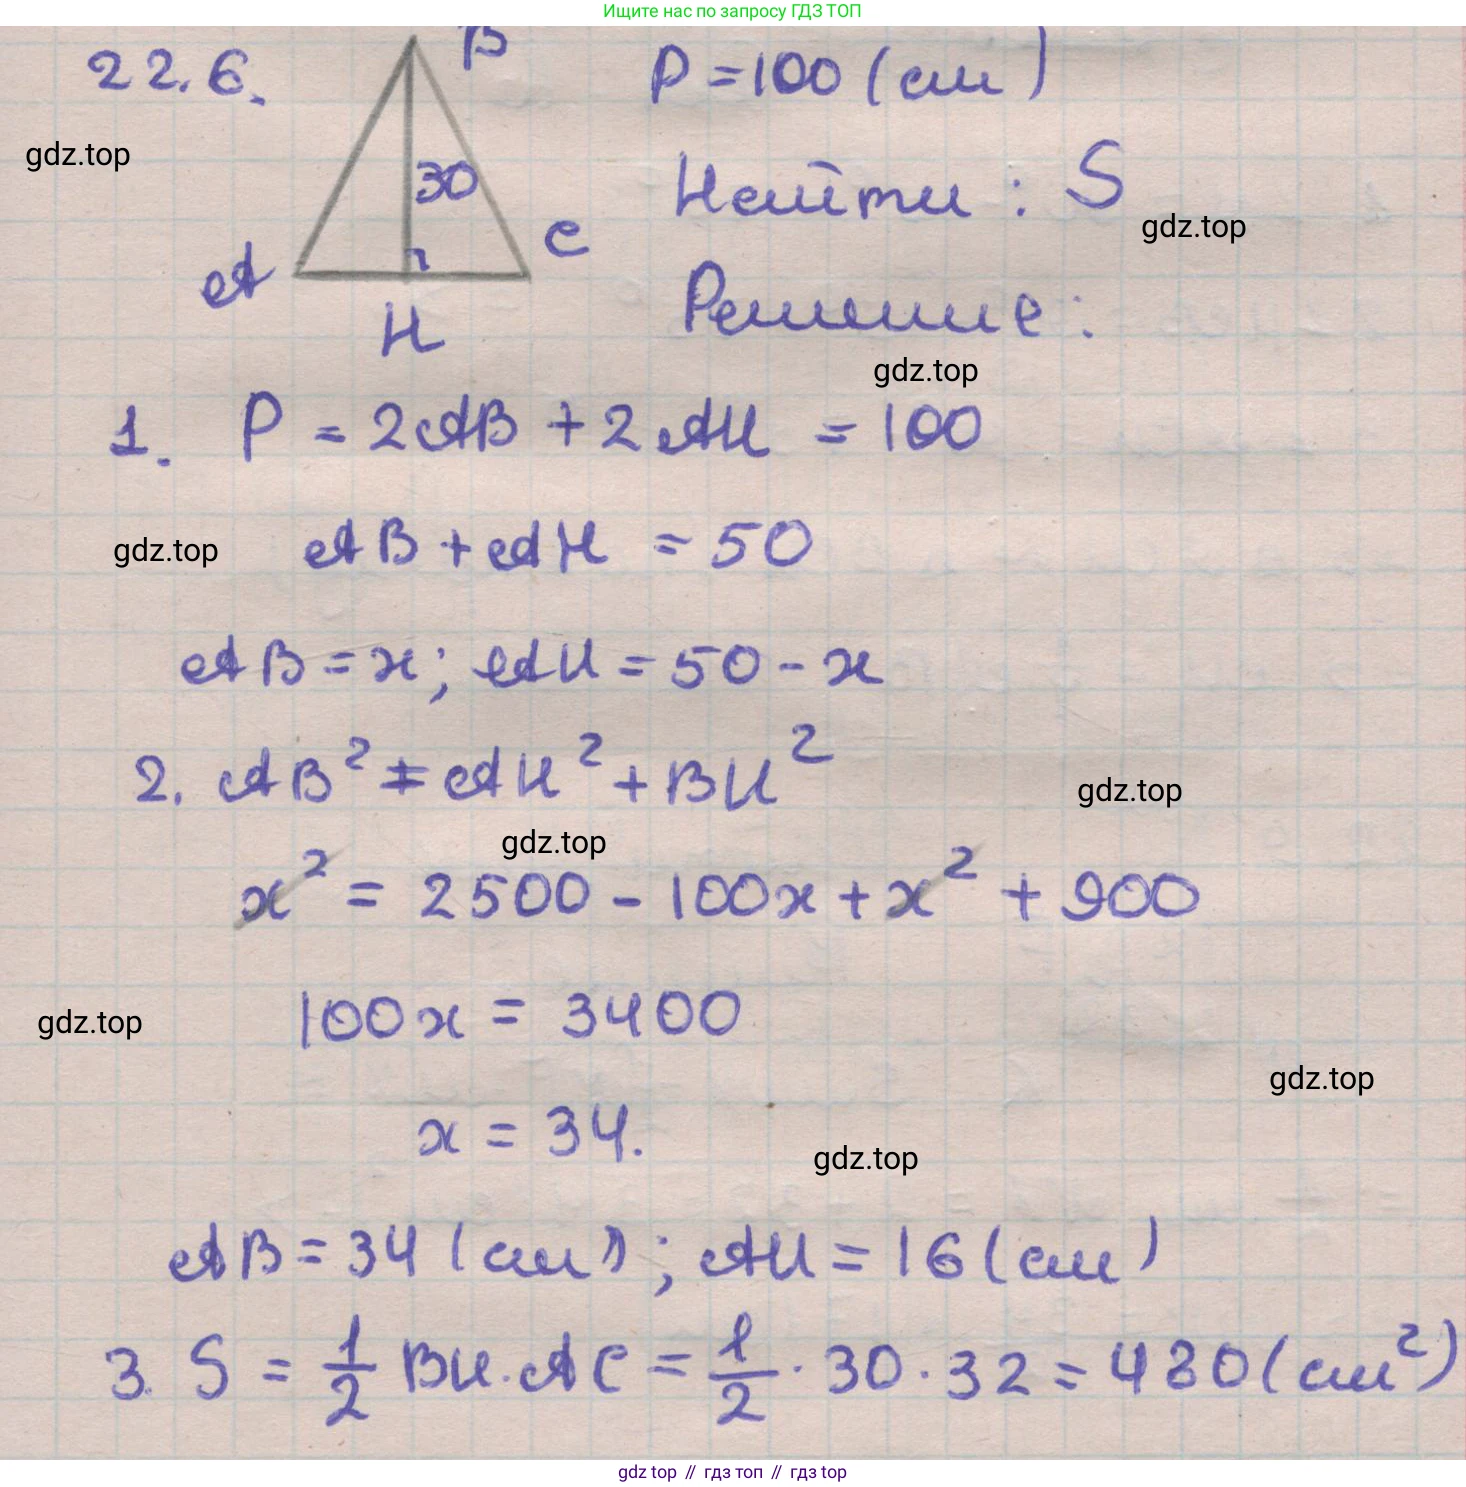 Ищите нас по запросу ГДЗ ТОП
22.6.
B
P = 100 (см)
gdz.top
30
Найти : S
gdz.top
C
A
H
Решение :
gdz.top
1. P = 2AB + 2AH = 100
gdz.top
AB + AH = 50
AB = x; AH = 50 - x
2. AB² = AH² + BH²
gdz.top
gdz.top
x² = 2500 - 100x + x² + 900
gdz.top
100x = 3400
gdz.top
x = 34.
gdz.top
AB = 34 (см); AH = 16 (см)
3. S = 1/2 BH · AC = 1/2 · 30 · 32 = 480 (см²)
gdz top // гдз топ // гдз top